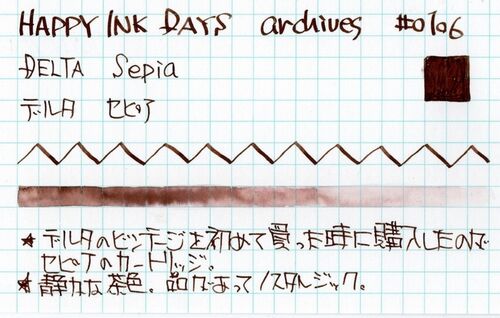 HAPPY INK DAYS archives #0106
DELTA Sepia
デルタ セピア
★デルタのビンテージを初めて買った時に購入したのが
セピアのカートリッジ。
★静かな茶色。品があってノスタルジック。